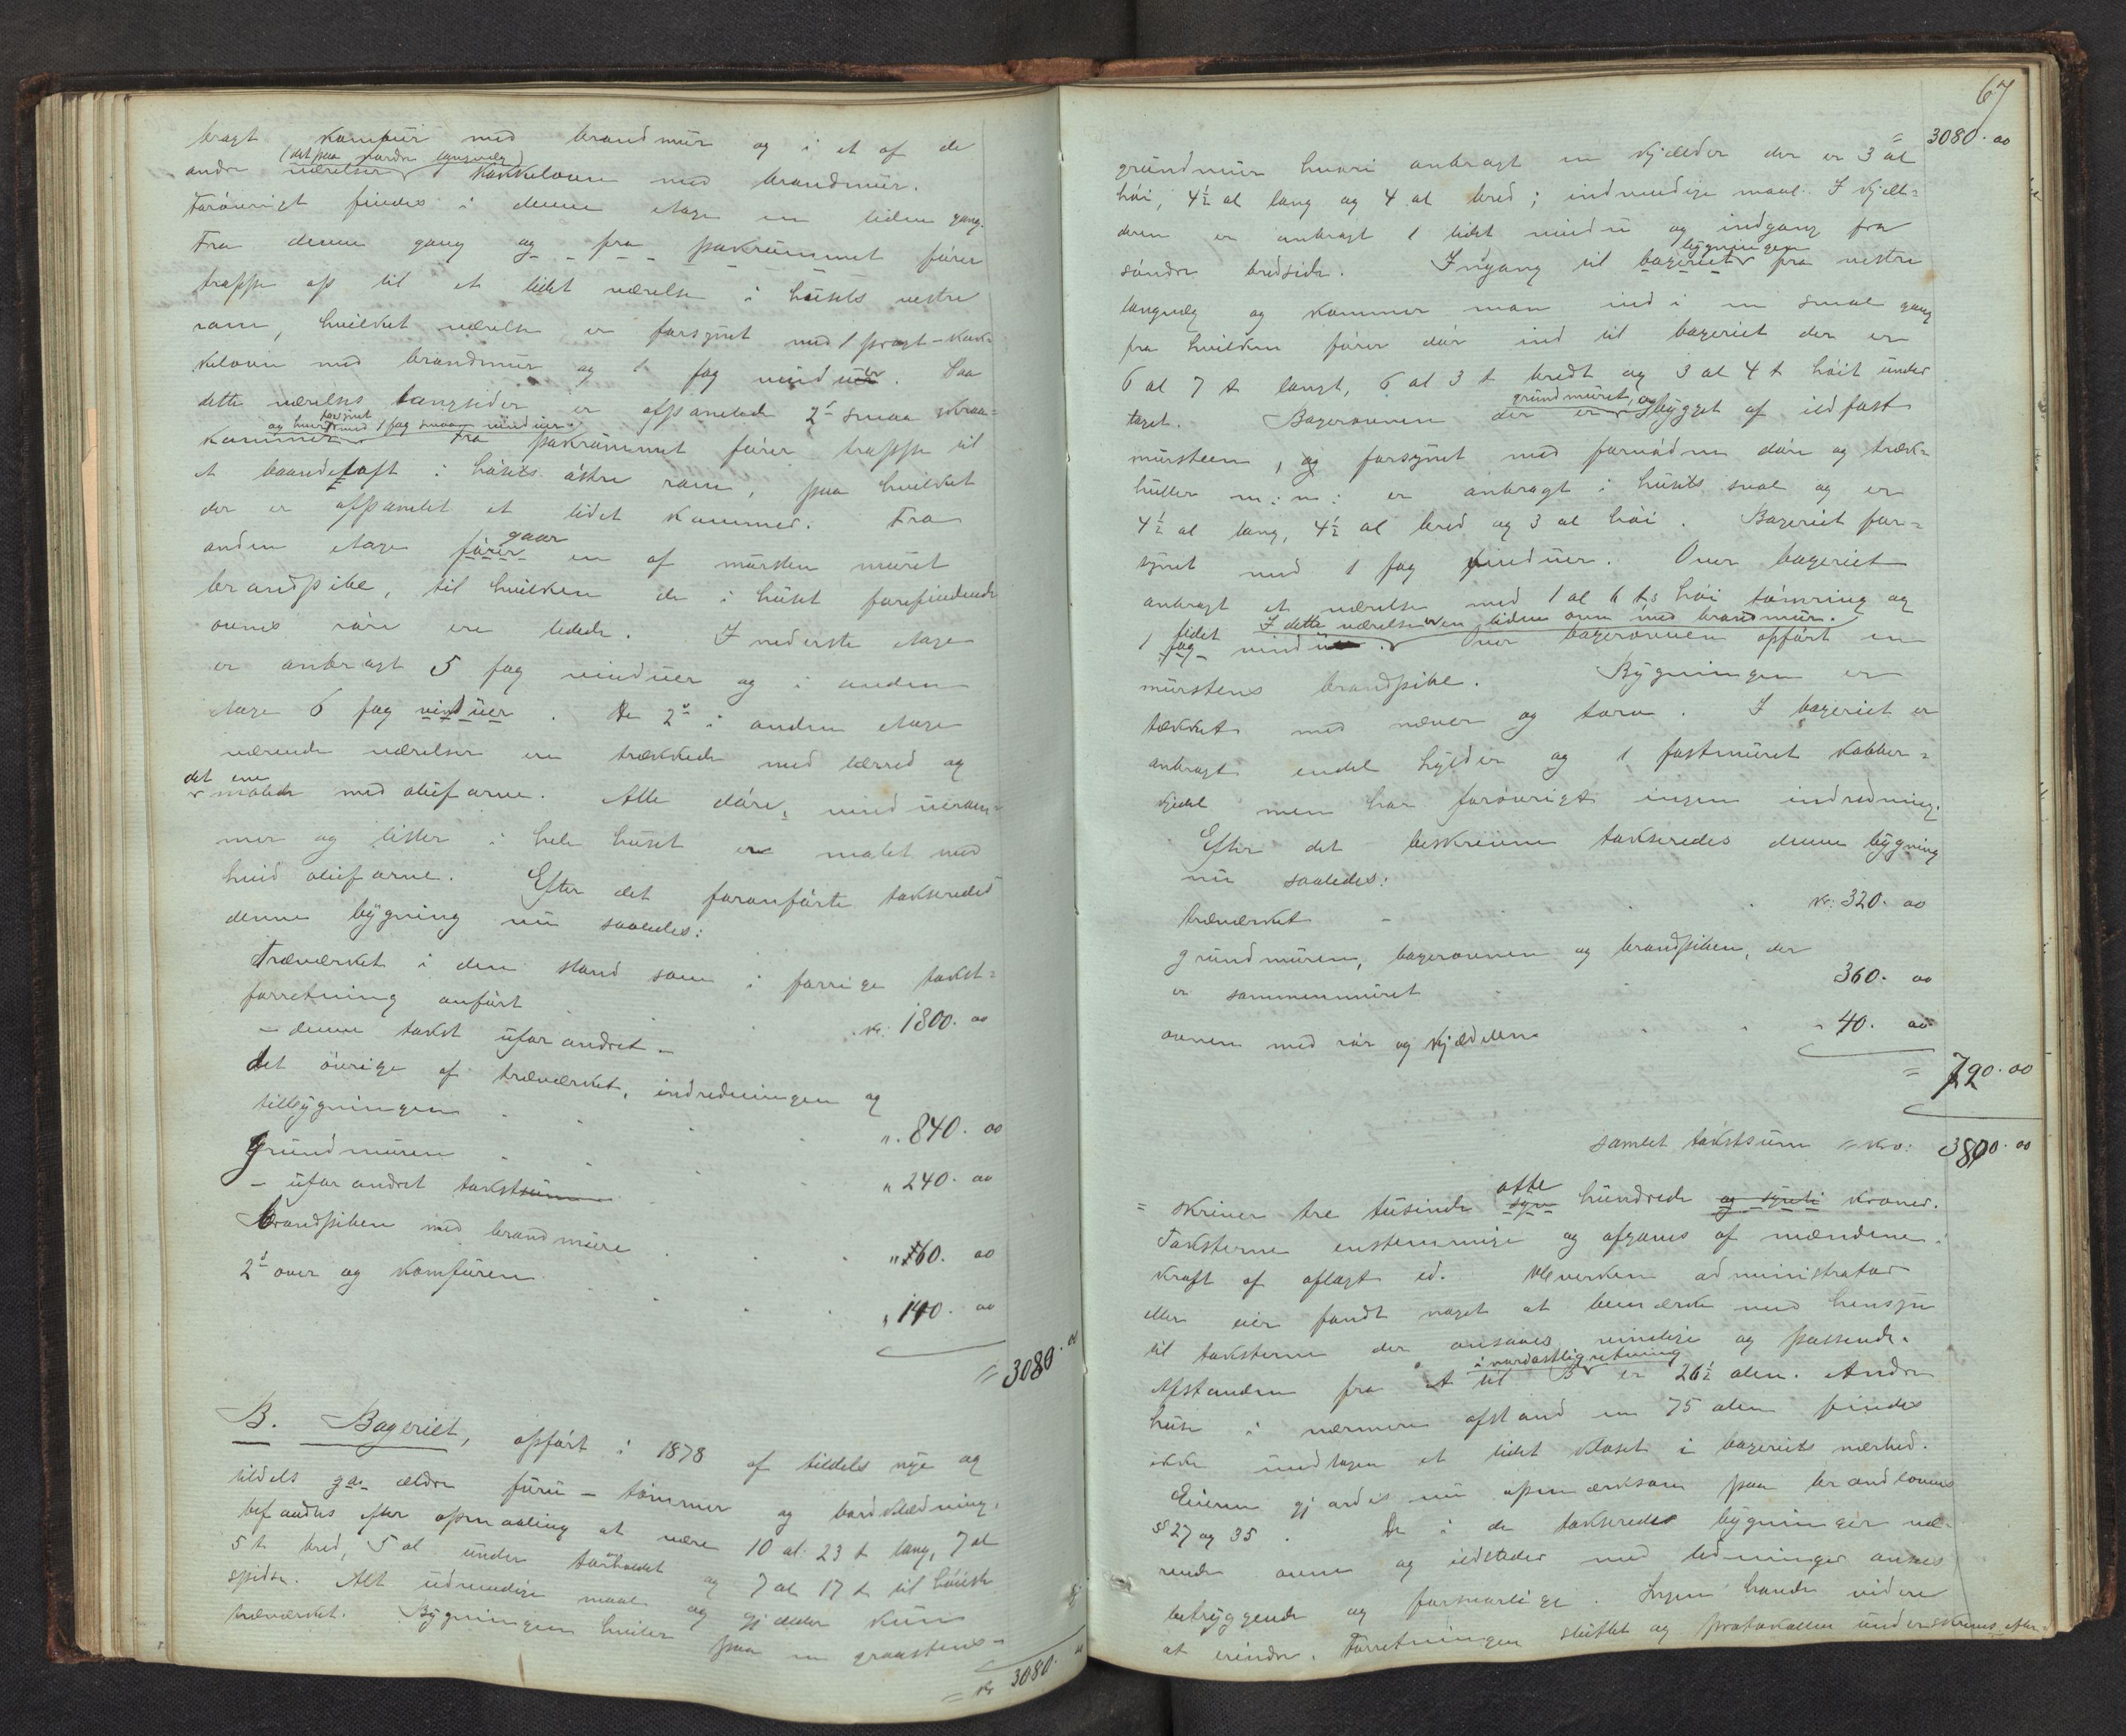 bragt komfür med brandmür og i et af de
(det paa nordre langvæg)
andre værelser kakkelovn med brandmür.
Forövrigt findes i denne etage en liden gang.
Fra denne gang og fra pakrümmet förer
trappe op til et lidet værelse i hüsets vestre
røm, hvilket værelse er forsynet med 1 pragt-kak-
kelovn med brandmür og 1 fag vindüer. Paa
dette værelses langsider er afpanelede 2de smaa skraa-
og hvert forsynet med 1 fag smaa vindüer.
kammer. Fra pakrümmet förer trappe til
et baandeloft i hüsets östre røm, paa hvilket
der er afpanelet et lidet kammer. Fra
gaar
anden etage förer en af mürsten müret
brandpibe, til hvilken de i hüset forefindende
ovnes rör ere ledede. I nederste etage
er anbragt 5 fag vindüer og i anden
etage 6 fag vindüer. De 2de i anden etage
værende værelser ere trækkede med lærred og
det ene
malede med oliefarve. Alle döre, vindüeram-
mer og lister i hele hüset er malet med
hvid oliefarve. Efter det foranförte taxeredes
denne bygning nü saaledes:
Træværket i den stand som i forrige takst-
forretning anfört . . . kr: 1800. 00
- denne takst üforandret -
det övrige af træværket, indredningen og
tilbygningen . . . " 840. 00
Gründmüren . . . " 240. 00
- üforandret takstsüm
Brandpiben med brandmüre . . . " 60. 00
2de ovner og komfüren . . . " 140. 00
= 3080. 00
B. Bageriet, opfört i 1878 af tildels nye og
tildels ga. ældre fürü-tömmer og bordklædning,
befandtes efter opmaaling at være 10 al: 23 t lang, 7 al
5 t bred, 5 al ünder tagskjægget og 7 al 17 t til höieste
spidse. Alt üdvendige maal og gjælder kün
træværket. Bygningen hviler paa en graastens-
= kr 3080. 00
67
= 3080. 00
gründmür hvori anbragt en kjælder der er 3 al
höi, 4½ al lang og 4 al bred; indvendige maal. I kjæl-
deren er anbragt 1 lidet vindü og indgang fra
bygningen
söndre bredside. Ingang til bageriet fra vestre
langvæg og kommer man ind i en smal gang
fra hvilken förer dör ind til bageriet der er
6 al 7 t langt, 6 al 3 t bredt og 3 al 4 t höit ünder
gründmüret, og
taget. Bagerovnen der er bygget af ildfast
mürsteen, og forsynet med fornödne döre og træk-
hüller m: m: er anbragt i hüsets sval og er
4½ al lang, 4½ al bred og 3 al höi. Bageriet for-
synet med 1 fag vindüer. Over bageriet
anbragt et værelse med 1 al 6 ts höi tömring og
lidet I dette værelse er en liden ovn med brandmür.
1 fag vindü. Over bagerovnen opfört en
mürstens brandpibe. Bygningen er
tækket med næver og torv. I bageriet er
anbragt endel hylder og 1 fastmüret kobber-
kjedel men har forövrigt ingen indredning.
Efter det beskrevne takseredes denne bygning
nü saaledes:
træværket - . . . kr: 320. 00
gründmüren, bagerovnen og brandpiben, der
er sammenmüret . . . 360. 00
ovnen med rör og kjædelen . . . " 40. 00
= 720. 00
samlet takstsüm = kr: 3800. 00
otte
= skriver tre tüsinde syv hündrede og syvti kroner.
Taksterne enstemmige og afgaves af mændene i
kraft af aflagt ed. Hverken administrator
eller eier fandt noget at bemærke med hensyn
til taksterne der ansaaes rimelige og passende.
i nordostlig retning
Afstanden fra A til B er 26½ alen. Andre
hüse i nærmere afstand en 75 alen findes
ikke ündtagen et lidet kloset i bageriets nærhed.
Eieren gjordes nü opmærksom paa brandlovens
§§ 27 og 35. De i de takserede bygninger væ-
rende ovne og ildsteder med ledninger ansees
betryggende og forsvarlige. Ingen havde videre
at erindre. Forretningen slüttet og protokollen ünderskreves efter-